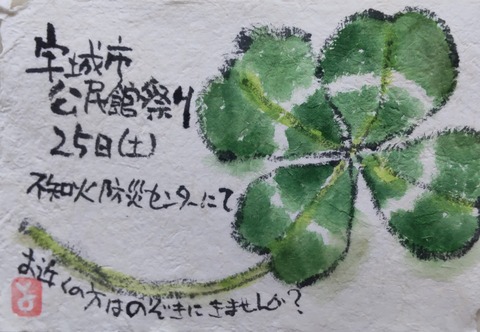 宇城市
公民館祭り
25日(土)
不知火防災センターにて
お近くの方はのぞきにきませんか?